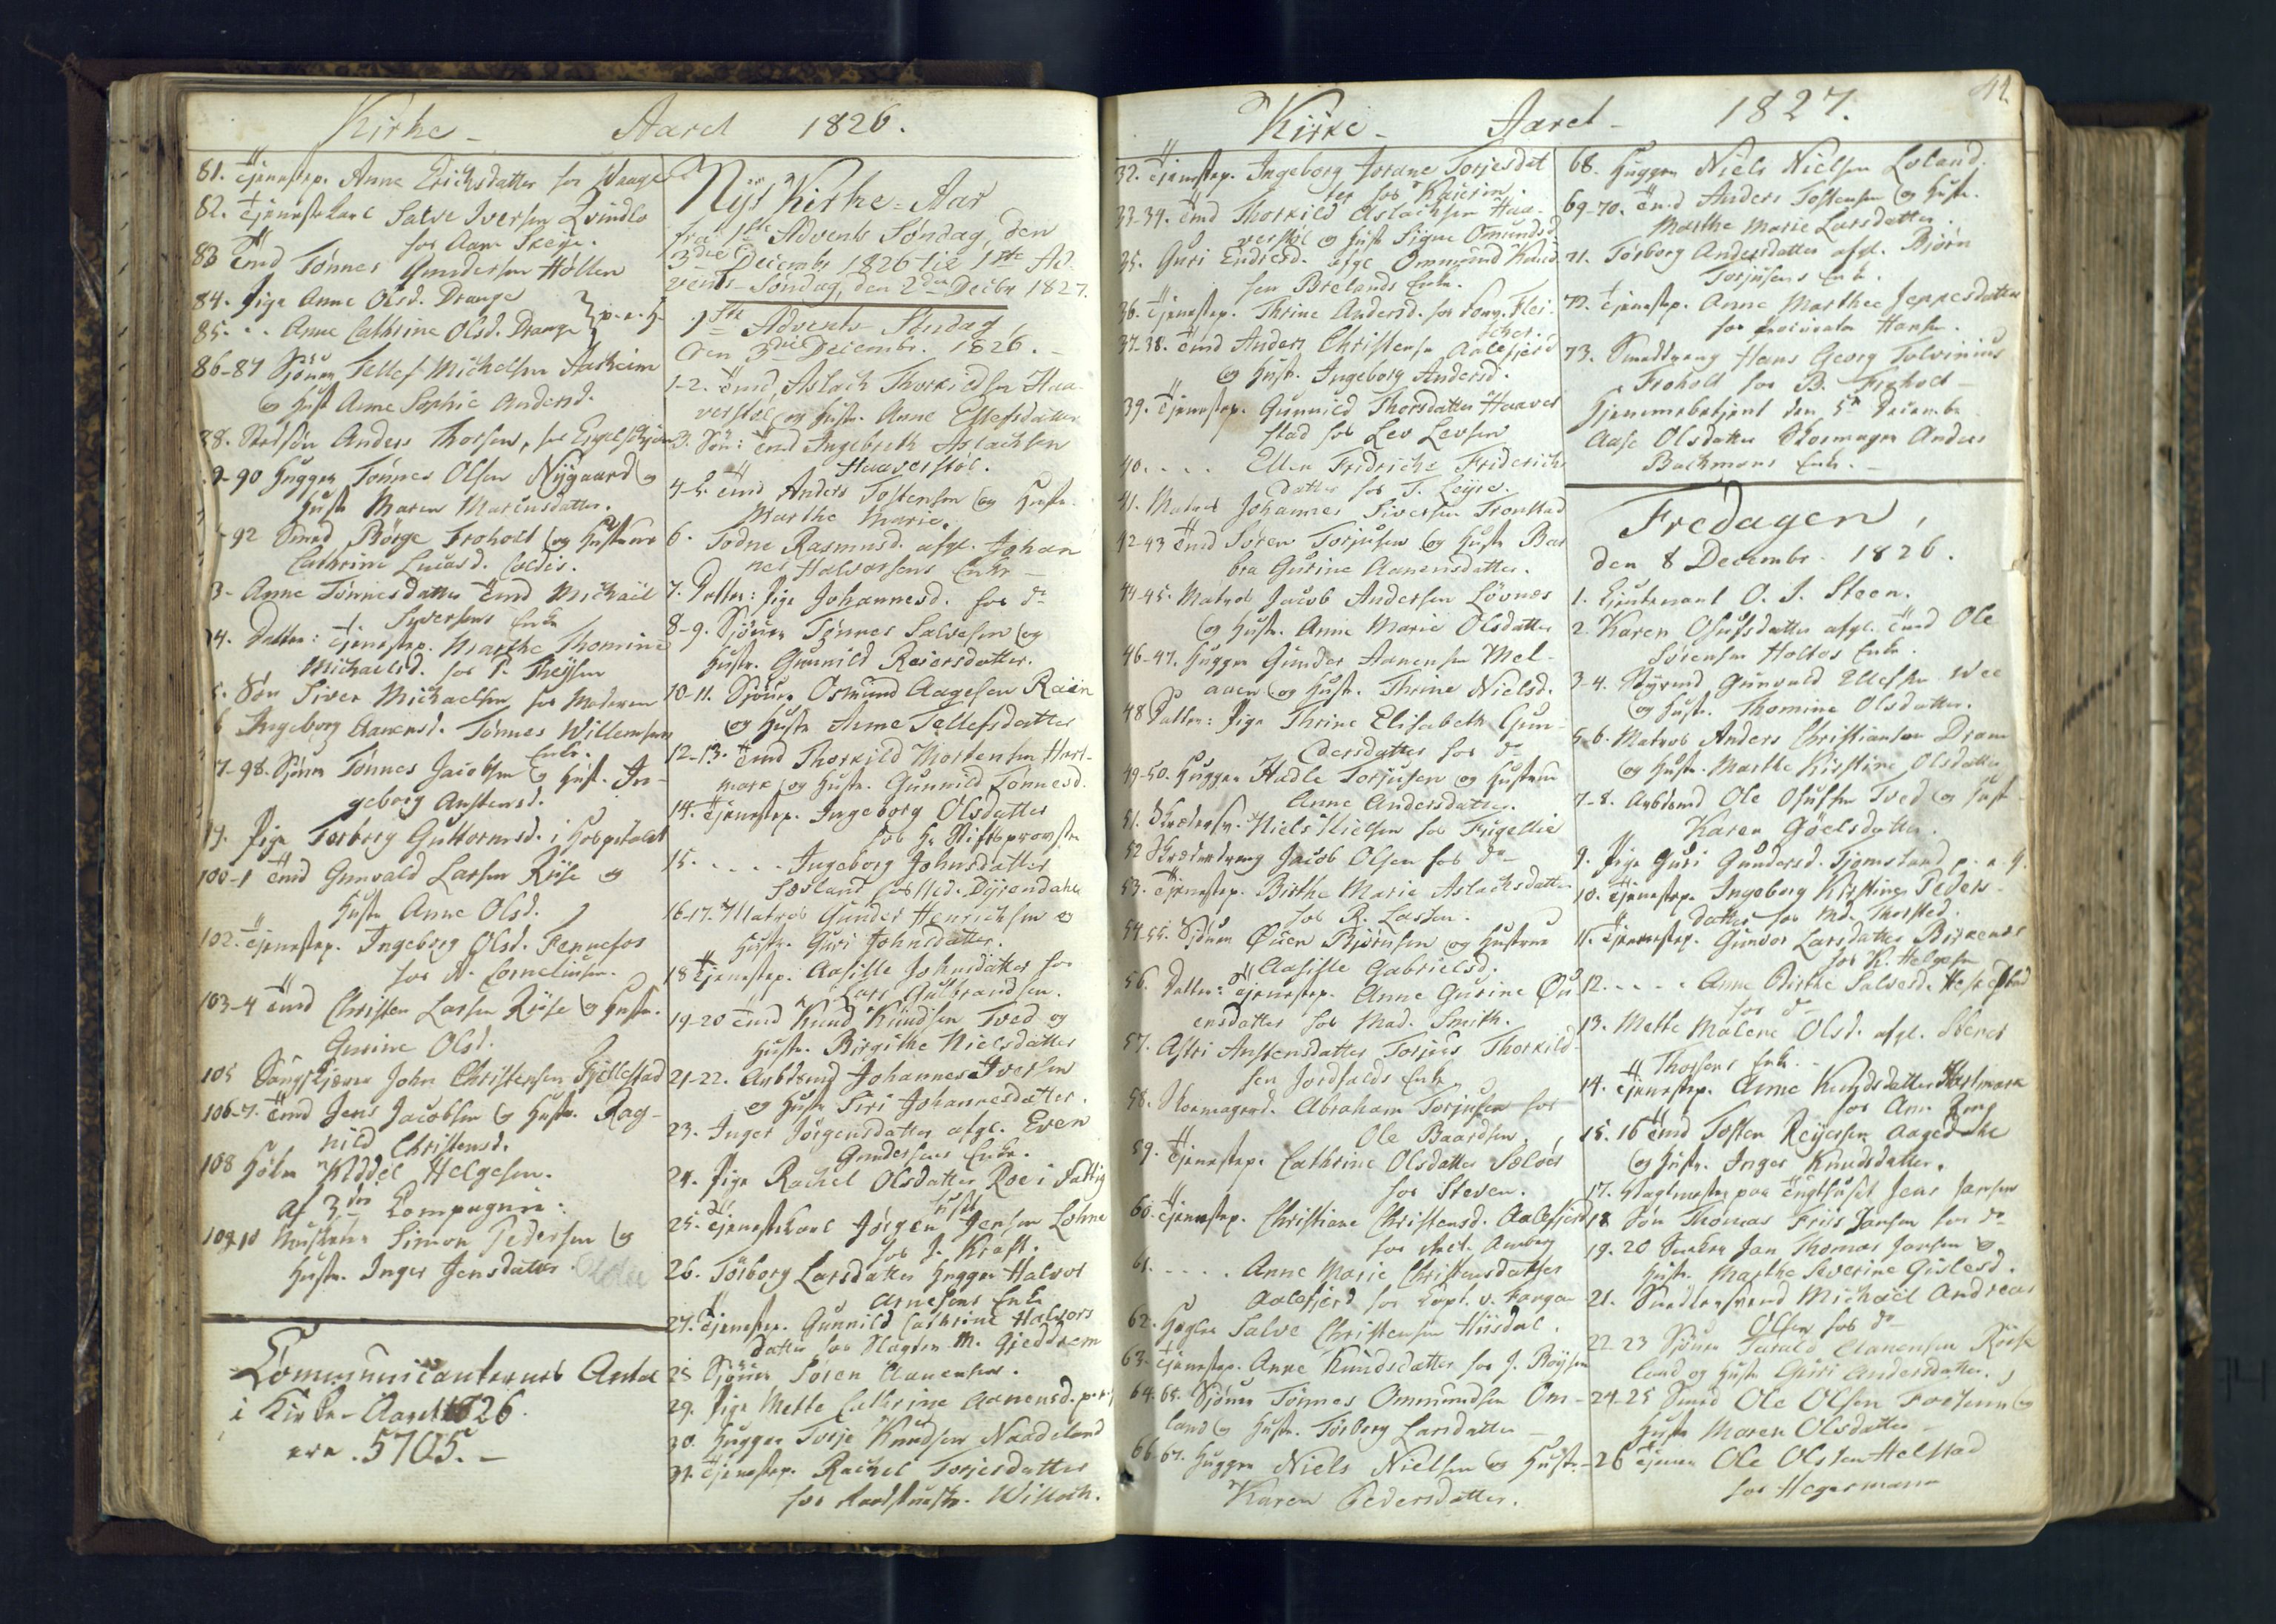 Kirke - Aaret 1826.
81. Tjenestep. Anne Erichsdatter for Waage
82. Tjenestekarl Salve Iversen Qvindlo
for Aan. Skeye.
83 Tmd Tønnes Gundersen Hollen
84. Pige Anne Olsd. Drange
85. - - Anne Cathrine Olsd. Drange } p. e. H.
86-87 Sjømn Tellef Michelsen Aasheim
og Hust Anne Sophie Andersd.
88. Stedsøn Anders Thorsen, for
9-90 Hugger Tønnes Olsen Nygaard og
Hust Maren Marcusdatter.
-92 Smed Børge Froholt og Hustrue
Cathrine Lucasd. Coldis.
3- Anne Tønnesdatter Tmd Michael
Syversens Enke
94. Datter: Tjenestep. Marthe Thomine
Michaelsd. for P. Theysen
5. Søn Siver Michaelsen for Moderen
6 Ingeborg Aanensd. Tønnes Willemsens
Enke.
7-98. Sjømn Tønnes Jacobsen og Hust. In-
geborg Anstensd.
99. Pige Torborg Guttormsd. i Hospitalet
100-1 Tmd Gunvald Larsen Riise og
Hust Anne Olsd.
102. Tjenestep. Ingeborg Olsd. Fennefos
for N. Corneliusen.
103-4 Tmd Christen Larsen Riise og Hustr.
Gurine Olsd.
105 John Christensen Fjellestad
106-7. Tmd Jens Jacobsen og Hustr. Rag-
nild Christensd.
108 Kiddel Helgesen.
af 3die Compagnie:
109-10 Simon Pedersen og
Hustr. Inger Jensdatter.
Communicanternes Antal
i Kirke-Aaret 1826.
ere .5705.-
Nyt Kirke-Aar
fra 1ste Advents Søndag, den
3die Decembr 1826 til 1ste Ad-
vents-Søndag, den 2den Decbr 1827.
1ste Advents-Søndag,
den 3die Decembr. 1826.-
1-2. Tmd. Aslach Thorkildsen Haa-
verstøl og Hustr. Anne Ellefsdatter
3. Søn: Tmd Ingebreth Aslachsen
Haaverstøl.
4-5. Tmd Anders Tostensen og Hustr.
Marthe Marie.
6. Todne Rasmusd. afgl. Johan
nes Halvorsens Enke -
7. Datter: Pige Johannesd. for do
8-9. Sjømn Tønnes Salvesen og
Hustr. Gunnild Reiersdatter.
10-11. Sjømn Osmund Aagesen Raen
og Hustr Anne Tellefsdatter
12-13. Tmd Thorkild Mortensen Hart-
mark og Hustr. Gunnild Tønnesd.
14. Tjenestep. Ingeborg Olsdatter
for Hr Stiftsprovsten
15. - - - Ingeborg Johnsdatter
for Md. Dyrendahl
16-17. Matros Gunder Henrichsen og
Hustr. Guri Johnsdatter.
18 Tjenestep. Aasille Johnsdatter for
Lars Gulbrandsen.
19-20 Tmd Knud Knudsen Tved og
Hustr. Birgithe Nielsdatter
21-22. Arbdsmd Johannes Iversen
og Hustr Siri Johannesdatter.
23. Inger Jørgensdatter afgl. Even
Gundersens Enke.
24. Pige Rachel Olsdatter Roe i Fattig
huset
25. Tjenestekarl Jørgen Jensen Lohne
for J. Kraft.
26. Torborg Larsdatter Hugger Halvor
Arnesens Enke
27. Tjenestep. Gunnild Cathrine Halvors
datter for Slagter M. Gjeddrem
28 Sjømn Søren Aanensen.
29. Pige Mette Cathrine Aanensd.
30. Hugger Terje Knudsen Naadeland
31. Tjenestep. Rachel Torjesdatter
for Willoch.
Kirke - Aaret - 1827. 44.
32. Tjenestep. Ingeborg Jorane Torjesdat
ter for Kaisrin.
33-34. Tmd Thorkild Aslachsen Haa-
verstøl og Hust Signe Omundsd
35. Guri Endresd. afgl Ommund Knud
sen Brelands Enke.
36. Tjenestep. Thrine Andersd. for Flei-
scher.
37-38. Tmd Anders Christensen Aalefjærd
og Hustr. Ingeborg Andersd.
39. Tjenestep. Gunnild Thorsdatter Haaver
stad for Lev Levsen
40. - - - Ellen Fridriche Friderichs
datter for T. Leyse.
41. Matros Johannes Siversen Tronstad
42-43 Tmd Søren Torjusen og Hustr Bar
bra Gurine Aanensdatter.
44-45. Matros Jacob Andersen Løvnes
og Hustr. Anne Marie Olsdatter
46-47. Hugger Gunder Aanensen Mel-
aaen og Hustr. Thrine Nielsd.
48 Datter: Pige Thrine Elisabeth Gun-
dersdatter for do
49-50. Hugger Hadle Torjusen og Hustrue
Anne Andersdatter.
51. Skrædersv. Niels Nielsen for Trigellie
52 Skræderdreng Jacob Olsen for do
53. Tjenestep. Birthe Marie Aslachsdatter
for R. Lassen.
54-55. Sjømn Øuen Bjørnsen og Hustrue
Aasille Gabrielsd.
56. Datter: Tjenestep. Anne Gurine Øu
ensdatter for Mad. Smith.
57. Astri Anstensdatter Torjus Thorkild-
sen Jordfalds Enke
58. Skomagersv. Abraham Torjusen for
Ole Baardsen.
59. Tjenestep. Cathrine Olsdatter Sælør
for Steven.
60. Tjenestep. Christiane Christensd. Aalefjærd
for Aanberg
61. - - - . Anne Marie Christensdatter
Aalefjærd for Capt. v. Fangen
62. Hegler Salve Christensen Hiisdal.
63. Tjenestep. Anne Knudsdatter for J. Boysen
64-65. Sjømn Tønnes Ommundsen Om-
land og Hustr. Torborg Larsdatter -
66-67. Hugger Niels Nielsen og Hustr.-
Karen Pedersdatter.
68. Hugger Niels Nielsen Loland.
69-70. Tmd Anders Tostensen og Hustr.
Marthe Marie Larsdatter.
71. Torborg Andersdatter afgl. Bjørn
Torjusens Enke.
72. Tjenestep. Anne Marthee Jeppesdatter
for Procurator Hansen.
73. Smeddreng Hans Georg Tolvinius
Froholt for B. Froholt -
Hjemmebetjent den 5te Decembr
Aase Olsdatter Skomager Anders
Bachmans Enke. -
Fredagen,
den 8 Decembr. 1826.
1. Lieutenant O. J. Steen.
2. Karen Osufsdatter afgl. Tmd Ole
Sørensen Holtes Enke.
3-4. Styrmd Gunvald Ellefsen Wee
og Hustr. Thomine Olsdatter.
5-6. Matros Anders Christiansen Dram
og Hustr. Marthe Kirstine Olsdatter
7-8. Arbdsmd Ole Osufsen Tved og Hust
Karen Gøelsdatter.
9. Pige Guri Gundersd. Tjomsland p. e. H.
10. Tjenestep. Ingeborg Kirstine Peders-
datter for Md. Thorsted.
11. Tjenestep. Gunvor Larsdatter Birkenes
for K. Helgesen
12. - - - - Anne Birthe Salvesd. Heskestad
for do
13. Mette Malene Olsd. afgl.
Thorsens Enke. -
14. Tjenestep. Anne Knudsdatter Hartmark
for Ann Ring
15. 16 Tmd Tosten Reyersen Aagedahl
og Hustr. Inger Knudsdatter.
17. Vagtmester paa Tugthuset Jens Jansen
18 Søn Thomas Friis Jansen for do
19. 20 Snedker Jan Thomas Jansen og
Hustr. Marthe Severine Gislesd.
21. Snedkersvend Michael Andreas
Olsen for do
22-23 Sjømn Tarald Aanensen Riise
land og Hustr Guri Andersdatter.
24-25 Smed Ole Olsen og
Hustr Maren Olsdatter -
26 Tjener Ole Olsen Helstad
for Hegermann